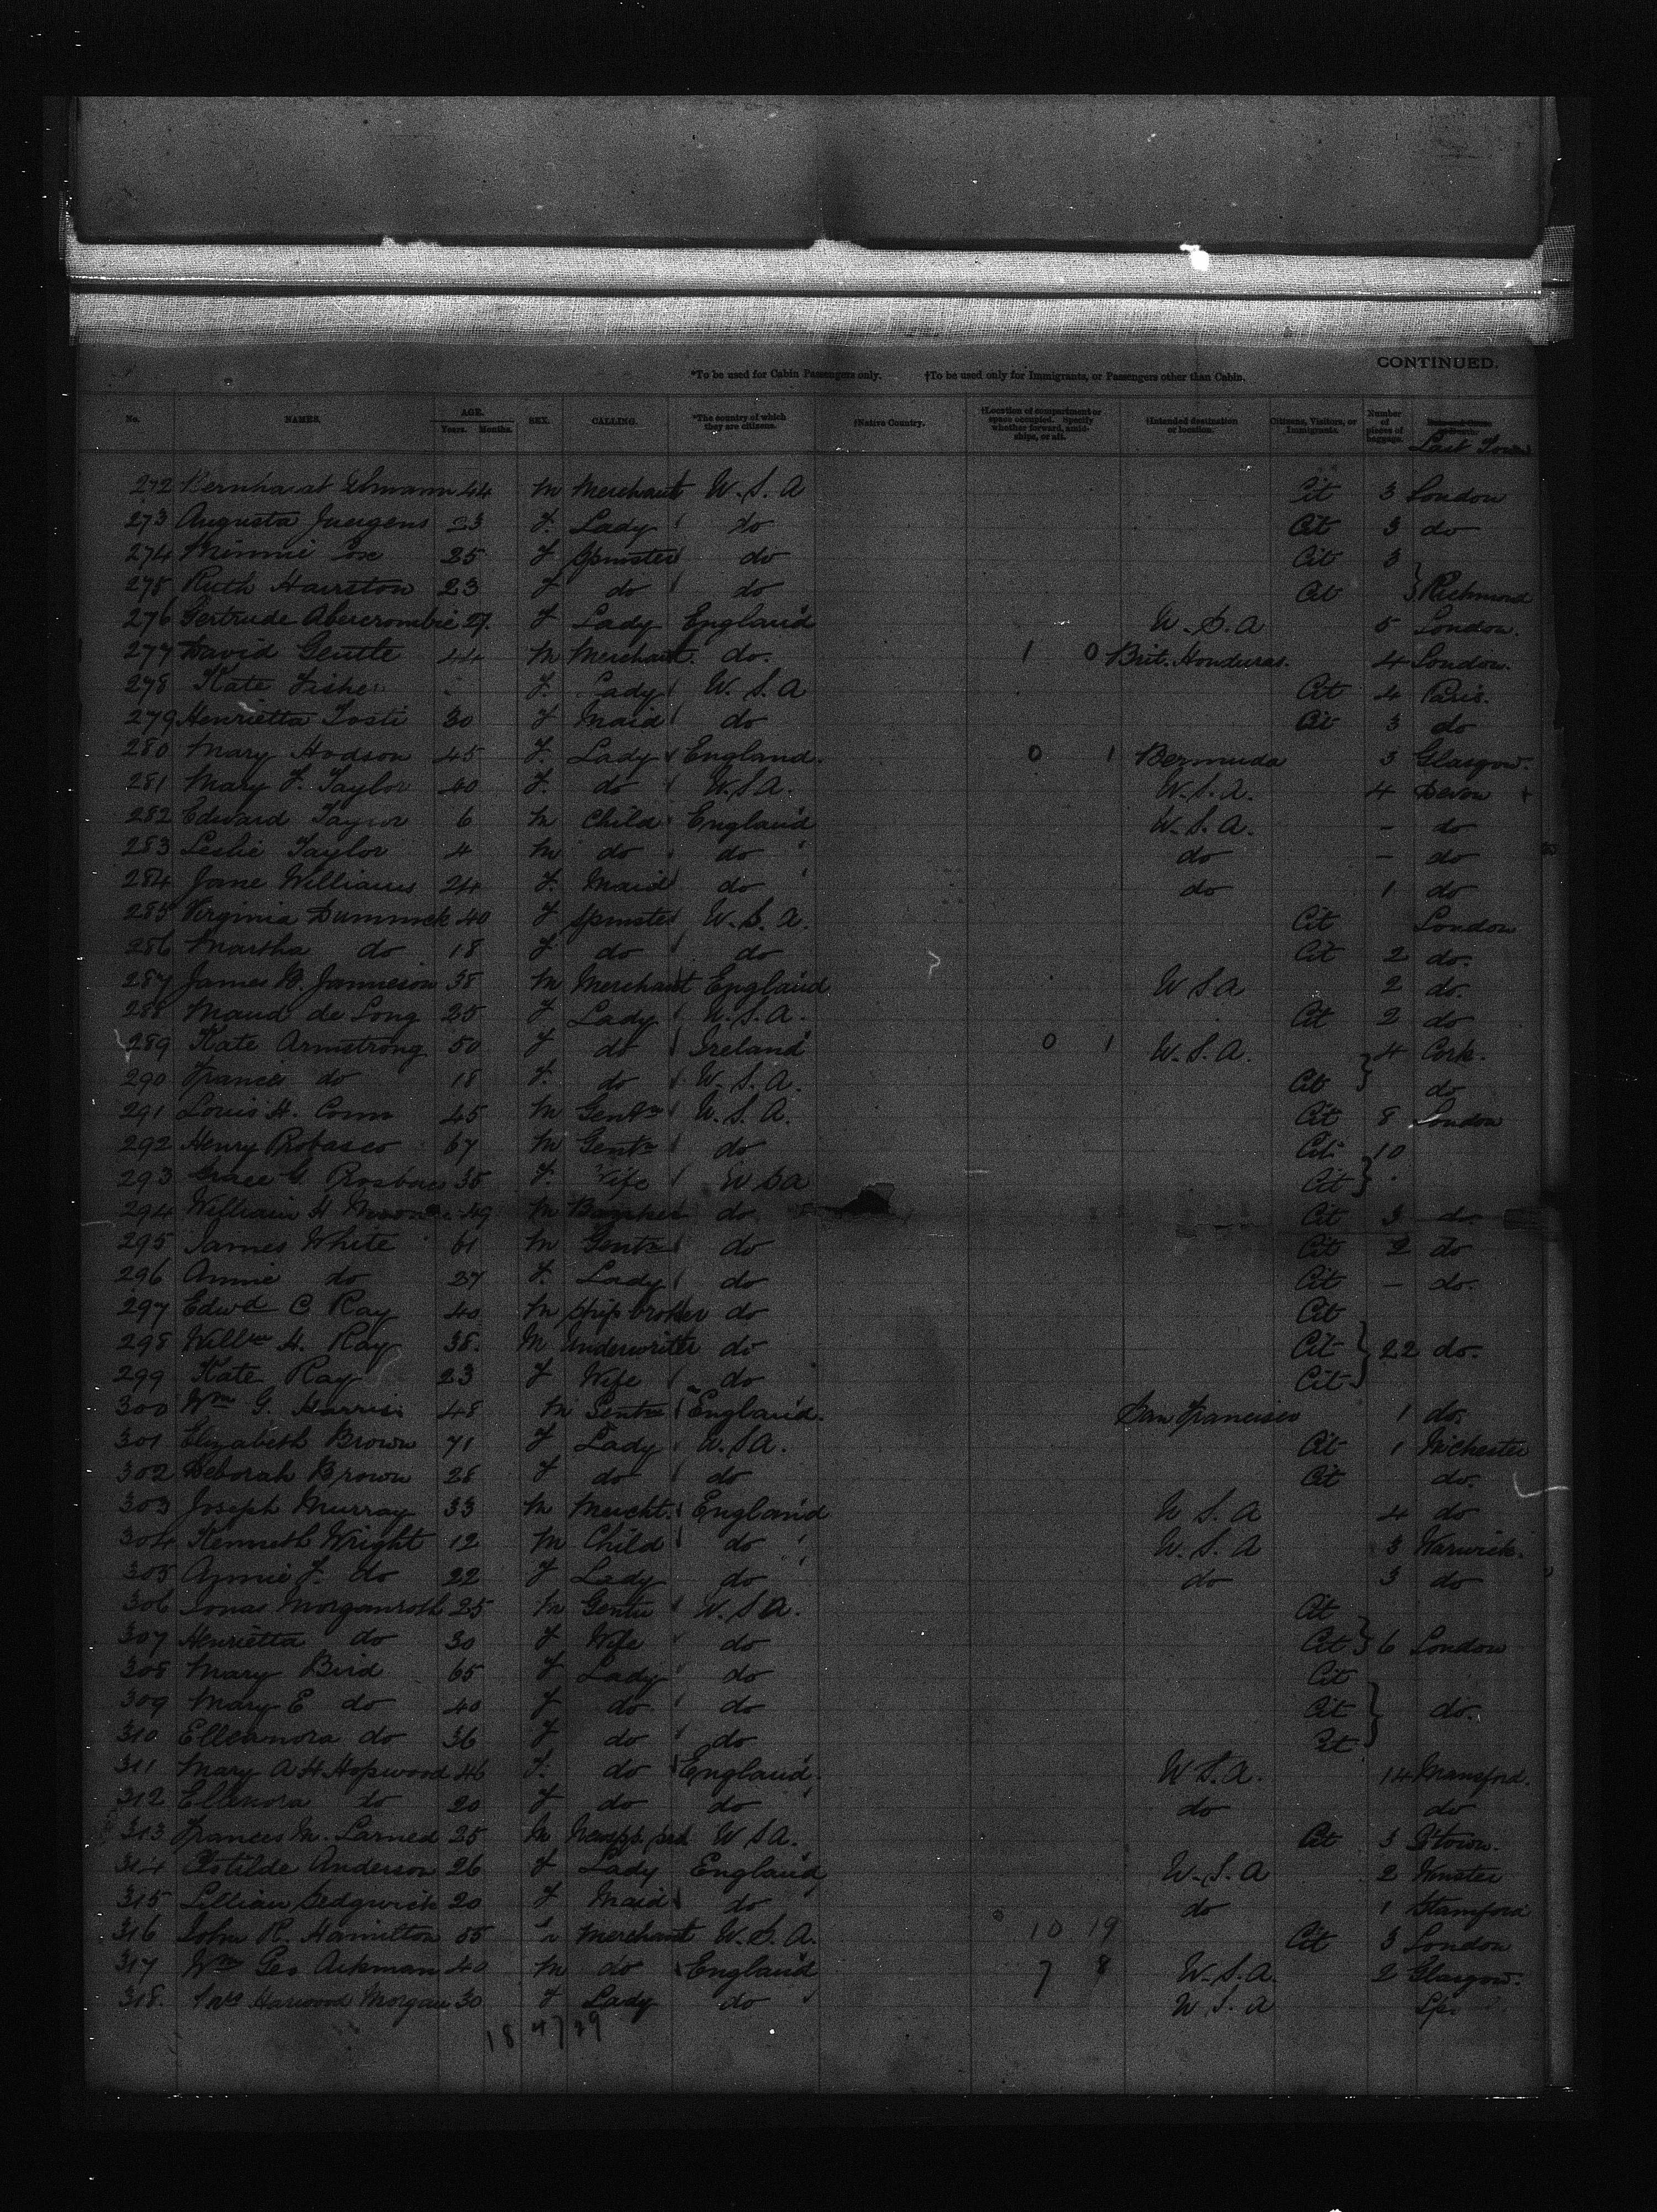 CONTINUED.
*To be used for Cabin Passengers only. †To be used only for Immigrants, or Passengers other than Cabin.
No. NAMES. AGE. Years. Months. SEX. CALLING. *The country of which they are citizens. †Native Country. †Location of compartment or space occupied. Specify whether forward, amidships, or aft. †Intended destination or location. Citizens, Visitors, or Immigrants. Number of pieces of baggage. Last Town
272 44 M Merchant U.S.A Cit 3 London
273 Augusta Juergens 23 F. Lady do Cit 3 do
274 Minnie 25 F Spinster do Cit 3
275 Ruth Hairston 23 F do do Cit 3 Richmond
276 Gertrude Abercrombie 27. F Lady England U.S.A 5 London.
277 David Gentle 44 M Merchant. do. 1 0 Brit. Honduras. 4 London.
278 Kate Fisher F. Lady U.S.A Cit 4 Paris.
279 Henrietta Tosti 30 F Maid do Cit 3 do
280 Mary Hodson 45 F. Lady England. 0 1 Bermuda 3 Glasgow.
281 Mary F. Taylor 40 F. do U.S.A. U.S.A. 4 Devon +
282 Edward Taylor 6 M Child England U.S.A. - do
283 Leslie Taylor 4 M do do do - do
284 Jane Williams 24 F. Maid do do 1 do
285 Virginia Dummick 40 F Spinster U.S.A. Cit London
286 Martha do 18 F do do Cit 2 do.
287 James Jamieson 38 M Merchant England U S A 2 do.
288 Maud de Long 25 F Lady U.S.A. Cit 2 do
289 Kate Armstrong 50 F do Ireland 0 1 U.S.A. 4 Cork.
290 Frances do 18 F. do U.S.A. Cit do
291 Louis H. Conn 45 M Gentn U.S.A. Cit 8 London
292 Henry Probasco 67 M Gentn do Cit 10
293 Grace G. 35 F. Wife U S A Cit
294 William H 49 M Banker do Cit 3 do
295 James White 61 M Gentn do Cit 2 do
296 Annie do 27 F. Lady do Cit - do.
297 Edwd C. Ray 40 M Ship broker do Cit
298 Willm H. Ray 38. M Underwriter do Cit 22 do.
299 Kate Ray 23 F Wife do Cit
300 Wm G. Harris 48 M Gentn England. San Francisco 1 do.
301 Elizabeth Brown 71 F Lady U.S.A. Cit 1 M'chester
302 Deborah Brown 28 F do do Cit do.
303 Joseph Murray 33 M Mercht. England U S. A 4 do
304 Kenneth Wright 12 M Child do U.S. A 3 Warwick.
305 Annie F. do 22 F Lady do do 3 do
306 Jonas Morganroth 25 M Gentn U.S A. Cit
307 Henrietta do 30 F Wife do Cit 6 London
308 Mary Bird 65 F Lady do Cit
309 Mary E do 40 F do do Cit do.
310 Elleanora do 36 F do do Cit
311 Mary A H Hopwood 46 F. do England. U S.A. 14
312 Ellenora do 20 F do do do do
313 Frances M. Larned 25 M U S A. Cit 3
314 Clotilde Anderson 26 F Lady England U.S.A 2
315 Lillian Sedgwick 20 F Maid do do 1 Stamford
316 John R. Hamilton 55 Merchant U.S.A. 10 19 Cit 3 London
317 Wm Geo Aikman 40 M do England 7 8 U.S.A. 2 Glasgow.
318. Mrs Harwood Morgan 30 F Lady do U S A